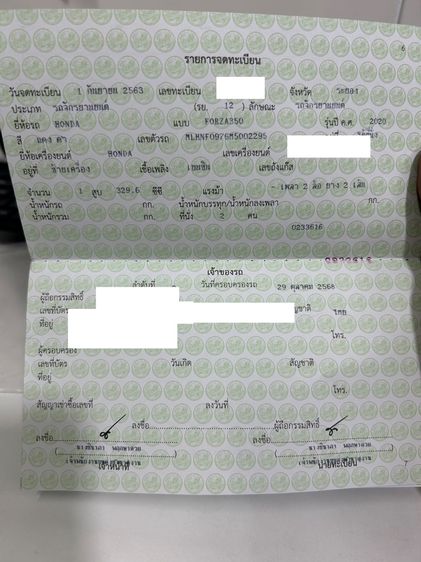 6
รายการจดทะเบียน
วันจดทะเบียน 1 กันยายน 2563 เลขทะเบียน จังหวัด ระยอง
ประเภท รถจักรยานยนต์ (รย. 12 ) ลักษณะ รถจักรยานยนต์
ยี่ห้อรถ HONDA แบบ FORZA350 รุ่นปี ค.ศ. 2020
สี แดง ดำ เลขตัวรถ MLHNF0976M5002295
ยี่ห้อเครื่องยนต์ HONDA เลขเครื่องยนต์
อยู่ที่ เชื้อเพลิง เบนซิน เลขถังแก๊ส
จำนวน 1 สูบ 329.6 ซีซี แรงม้า - เพลา 2 ล้อ ยาง 2 เส้น
น้ำหนักรถ กก. น้ำหนักบรรทุก/น้ำหนักลงเพลา กก.
น้ำหนักรวม กก. ที่นั่ง 2 คน
0233616
เจ้าของรถ
ลำดับที่ วันที่ครอบครองรถ 29 ตุลาคม 2568
ผู้ถือกรรมสิทธิ์
เลขที่บัตร ไทย
ที่อยู่
โทร.
ผู้ครอบครอง
เลขที่บัตร วันเกิด สัญชาติ
ที่อยู่
โทร.
สัญญาเช่าซื้อเลขที่ ลงวันที่
ลงชื่อ ผู้ถือกรรมสิทธิ์
ลงชื่อ ลงชื่อ
เจ้าหน้าที่ นายทะเบียน
7